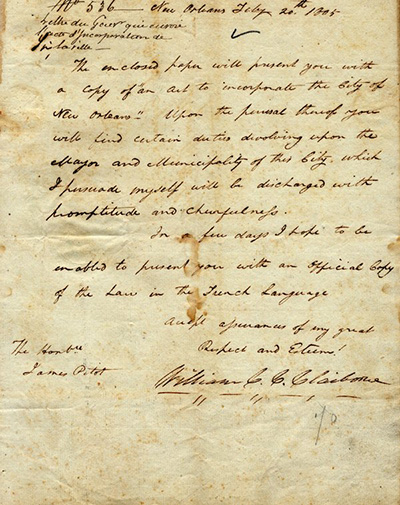 No. 536 — New Orleans Feby 20th 1805
Lettre du Gouvr qui envoie
l'acte d'Incorporation de
la ville —
The enclosed paper will present you with
a copy of an act to "incorporate the City of
New Orleans". Upon the perusal thereof you
will find certain duties devolving upon the
Mayor and Municipality of this City, which
I persuade myself will be discharged with
promptitude and chearfulness.
In a few days I hope to be
enabled to present you with an Official Copy
of the Law in the French Language
Accept assurances of my great
Respect and Esteem!
The Honble
James Pitot
William C. C. Claiborne